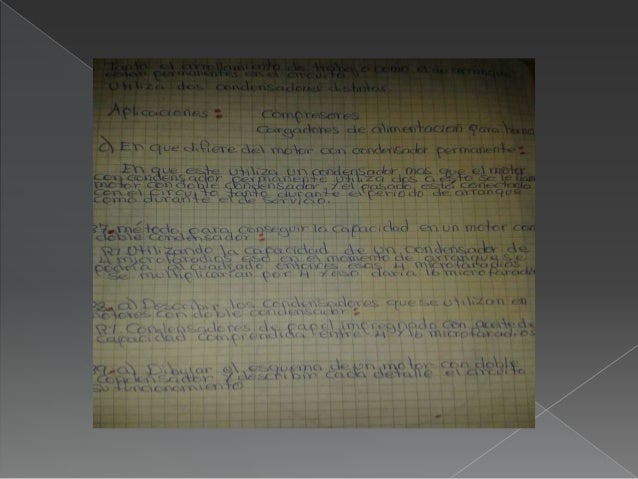 Tanto el arrollamiento de trabajo como el de arranque
estan permanentes en el circuito
Utiliza dos condensadores distintos.
Aplicaciones: Compresores
Cargadores de alimentacion para horno
c) En que difiere del motor con condensador permanente:
En que este utiliza un condensador mas que el motor
con condensador permanente utiliza dos a esto se le llama
motor con doble condensador, y el pasado, esta conectado
con el circuito tanto durante el periodo de arranque
como durante el de servicio.
37.- método para conseguir la capacidad en un motor con
doble condensador:
R/ Utilizando la capacidad de un condensador de
4 microfaradios eso en el momento de arranque se
al cuadrado entonces esos 4 microfaradios
se multiplicarian por 4 y eso daria 16 microfaradi
38.- a) Describir los condensadores que se utilizan en
motores con doble condensador:
R/. Condensadores de papel impregnado con aceite de
capacidad comprendida entre 4 y 16 microfaradios
39.- a) Dibujar el esquema de un motor con doble
condensador y describir cada detalle el circuito
su funcionamiento